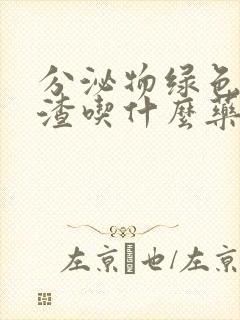 分泌物绿色
渣喫什麼藥
左京 也/左京